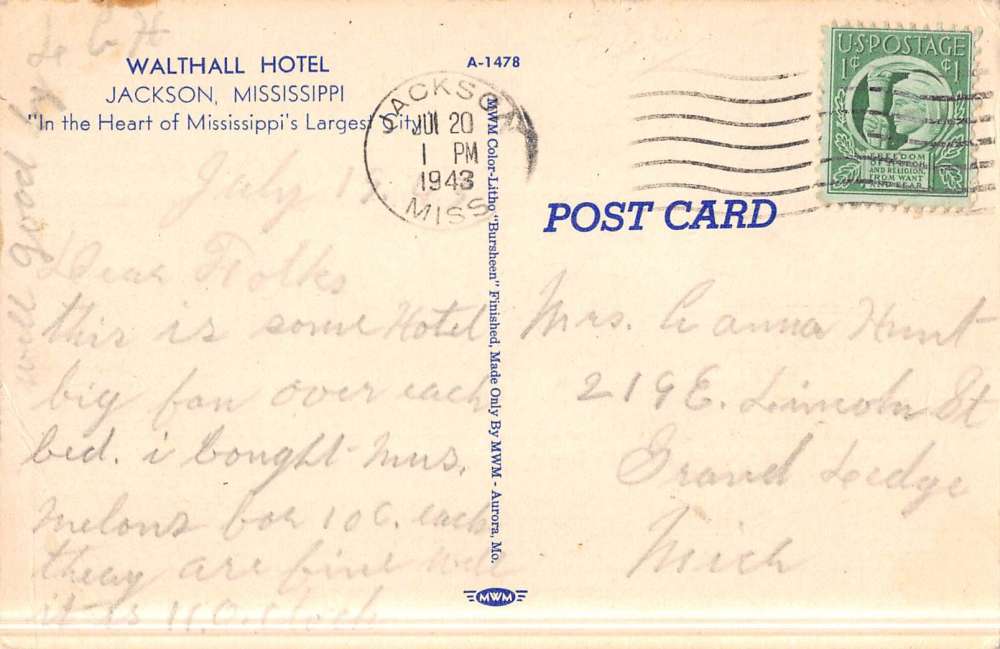 WALTHALL HOTEL
JACKSON, MISSISSIPPI
"In the Heart of Mississippi's Largest City"
A-1478
JACKSON
JUL 20
1 PM
1943
MISS.
U.S. POSTAGE
1¢ 1¢
FREEDOM
OF SPEECH
AND RELIGION,
FROM WANT
AND FEAR
POST CARD
MWM Color-Litho "Bursheen" Finished, Made Only By MWM - Aurora, Mo.
MWM
July 19
Dear Folks
this is some Hotel
big fan over each
bed. i bought Mus.
melons for 10 c. each
theay are fine well
it is 11.O.Clock
well good by
Mrs. Hunt
219 E. Lincoln St
Grand Ledge
Mich